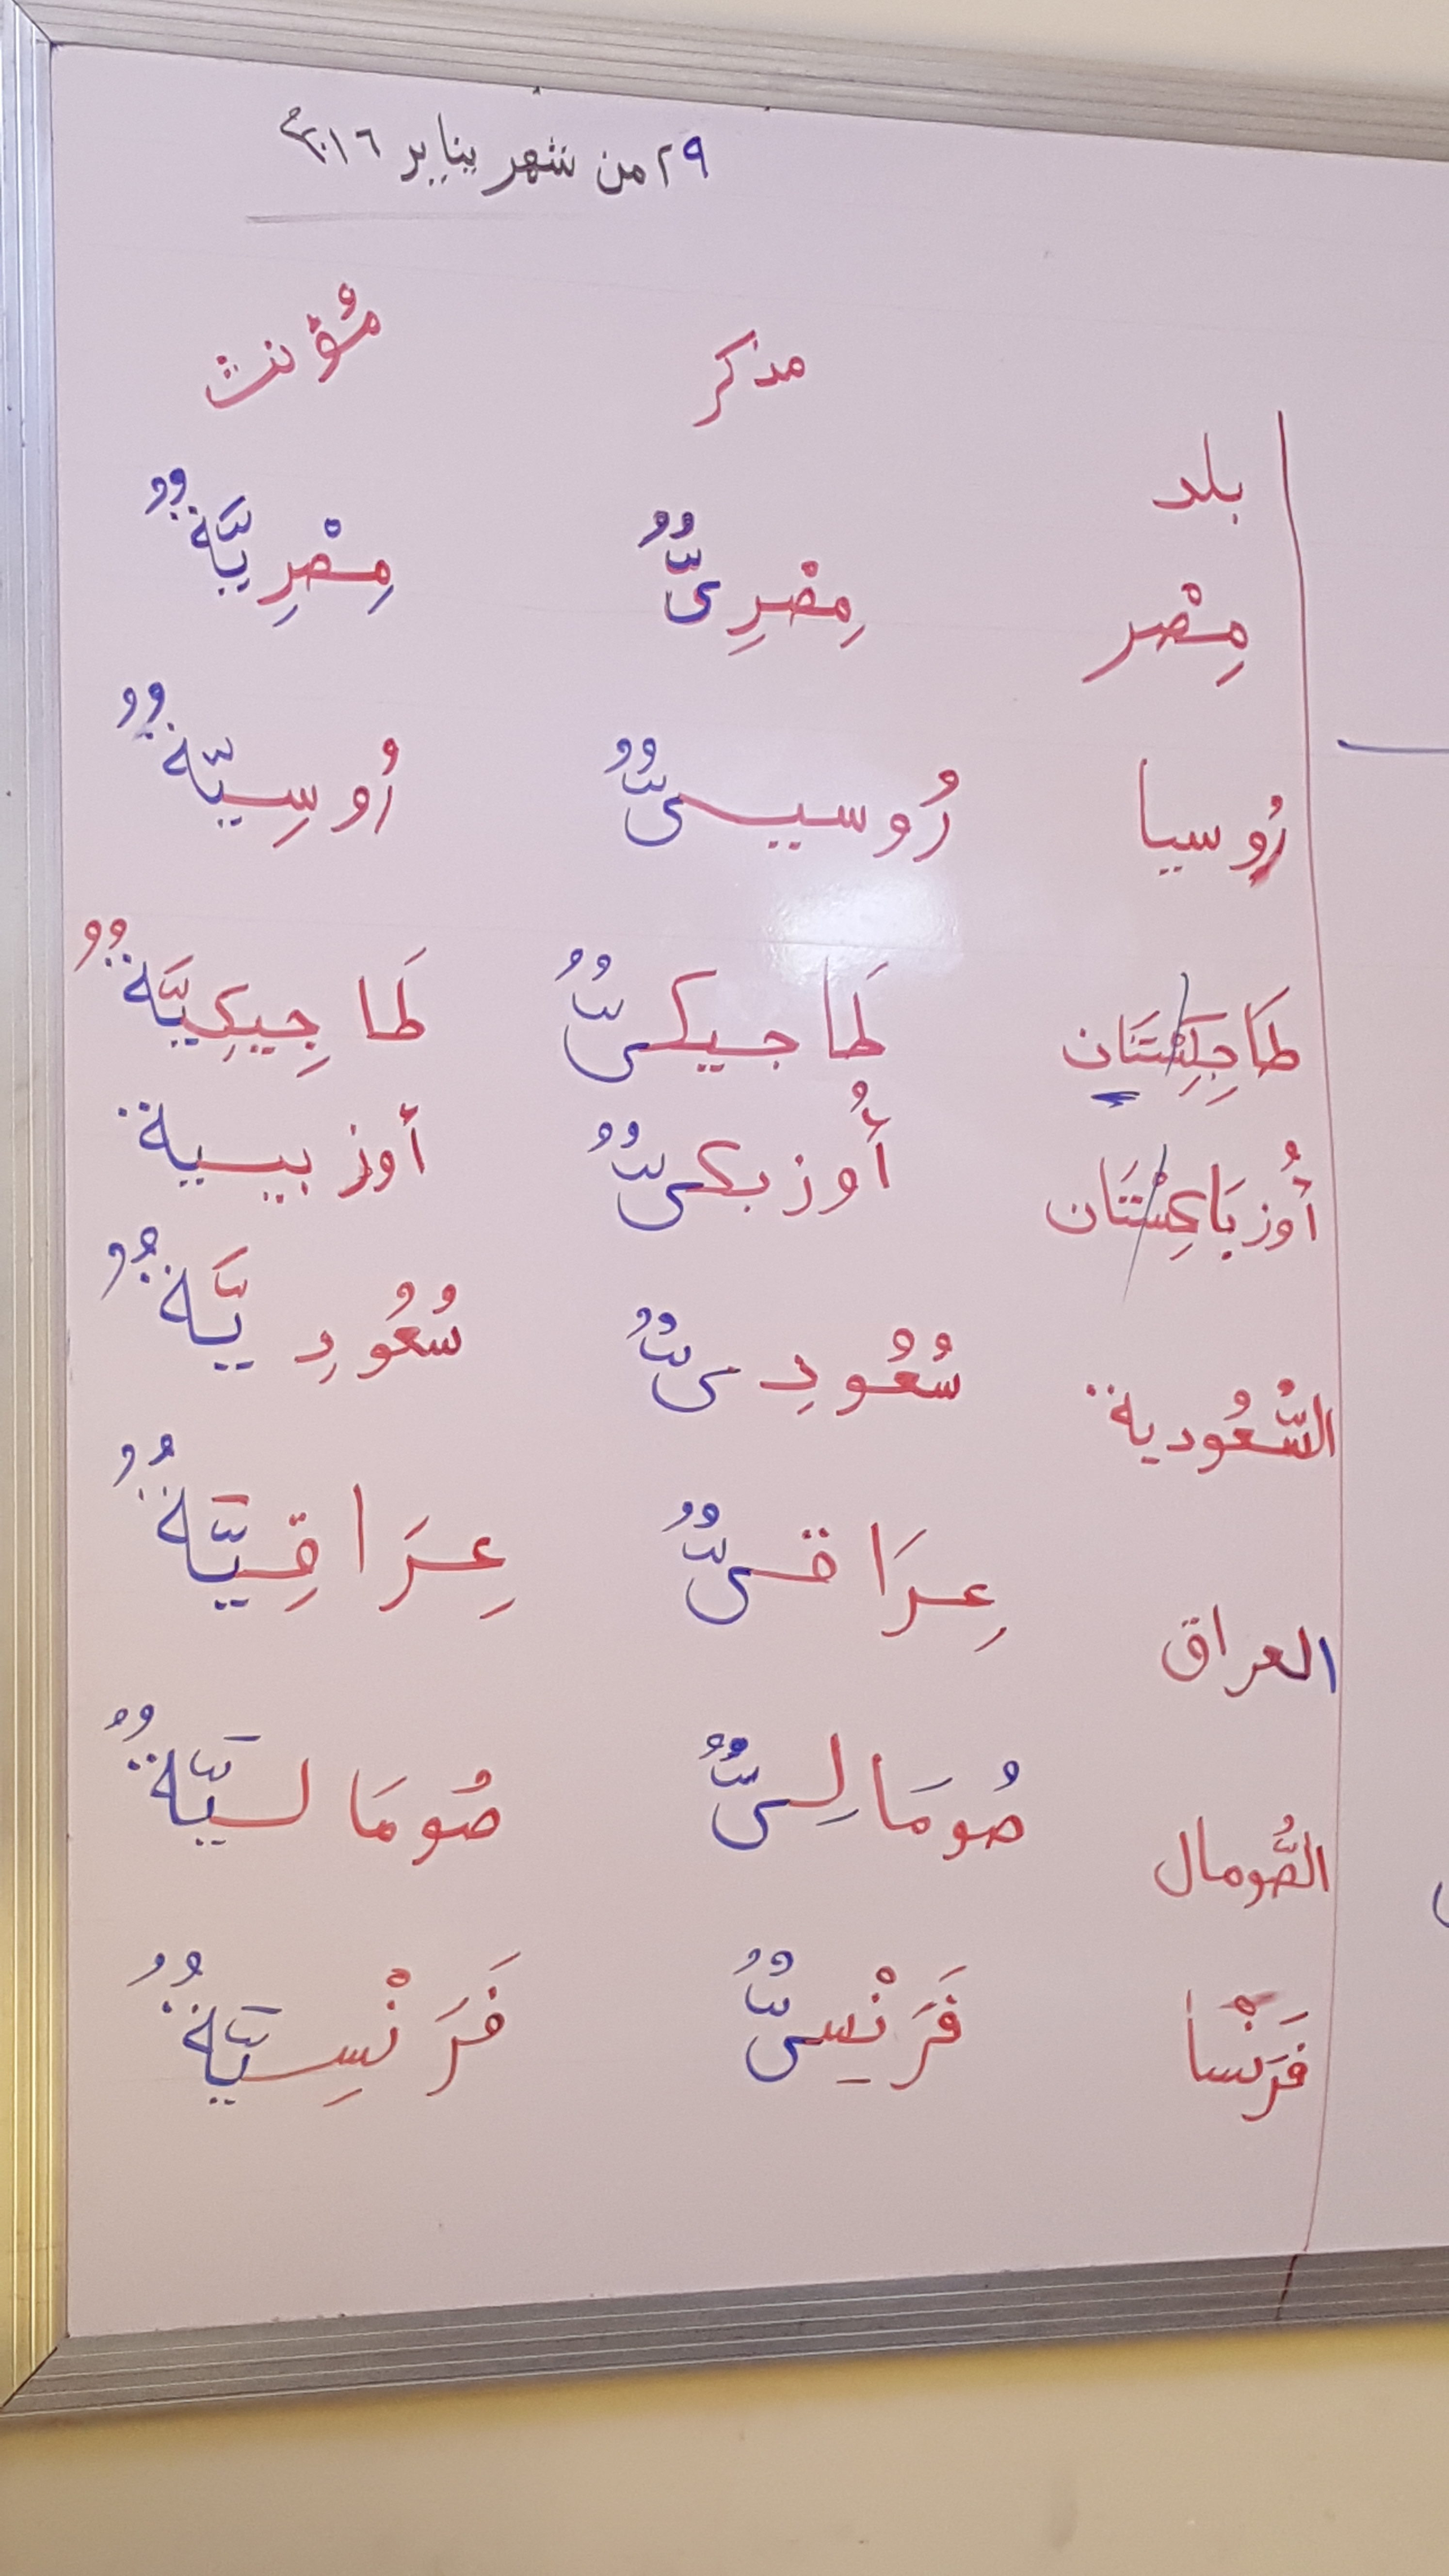 ٢٩ من شهر يناير ٢٠١٦م
بلد مذكر مُؤنث
مِصْر مِصْرِىٌّ مِصْرِيَّةٌ
رُوسيا رُوسيىٌّ رُوسِيّةٌ
طَاجِكِسْتَان طَاجيكىٌّ طَاجِيكِيَّةٌ
أُوزبَاكِسْتَان أُوزبكىٌّ أوزبيسية
السُّعُودية سُعُودِىٌّ سُعُودِيَّةٌ
العراق عِرَاقىٌّ عِرَاقِيَّةٌ
الصُّومال صُومَالِىٌّ صُومَاليَّةٌ
فَرَنْسا فَرَنْسِىٌّ فَرَنْسِيَّةٌ